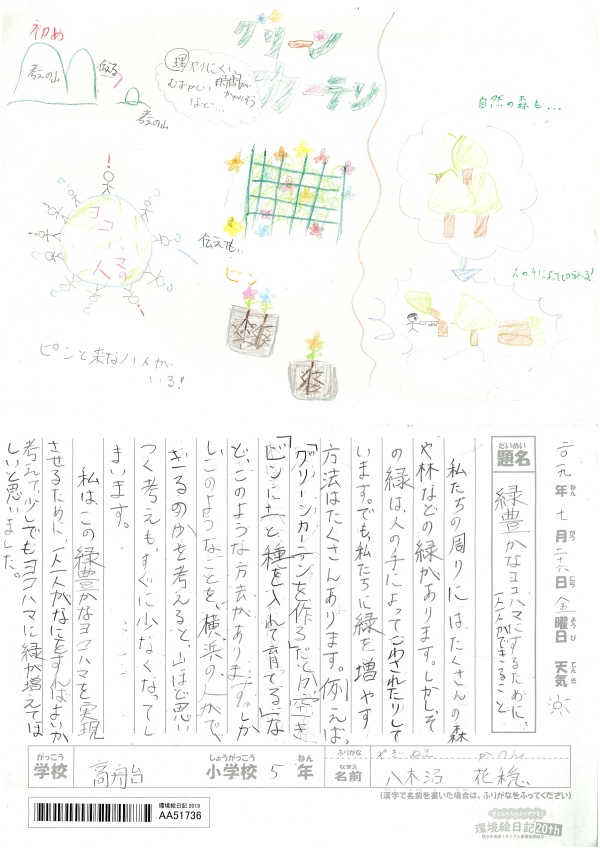 初め
考えの山
伝える
考えの山
理 やりにくい
むずかしい 時間が
かかりそう
など…
グリーン
カーテン
自然の森も…
ヨコハマの
人
伝えても…
ビン
人の手によって切られる!
ピンと来ない人が
いる!
二〇一九年七月二十六日金曜日 天気
だいめい
題名
緑豊かなヨコハマにするために、
一人一人ができること
私たちの周りには、たくさんの森
や林などの緑があります。しかし、そ
の緑は、人の手によってこわされたりして
います。でも、私たちに緑を増やす
方法はたくさんあります。例えば、
「グリーンカーテンを作る」だとか「空き
ビンに土と種を入れて育てる」な
ど、このような方法があります。しか
し、このようなことを、横浜の人ができ
きるのかを考えると、山ほど思い
つく考えも、すぐに少なくなってし
まいます。
私は、この緑豊かなヨコハマを実現
させるために、一人一人がなにをすればよいか
考えて少しでもヨコハマに緑が増えてほ
しいと思いました。
がっこう
学校
高舟台
しょうがっこう
小学校
5
ねん
年
ふりがな
やぎぬま かのん
なまえ
名前
八木沼 花穏
(漢字で名前を書いた場合は、ふりがなをふってください)
環境絵日記 2019
AA51736
環境絵日記 20th